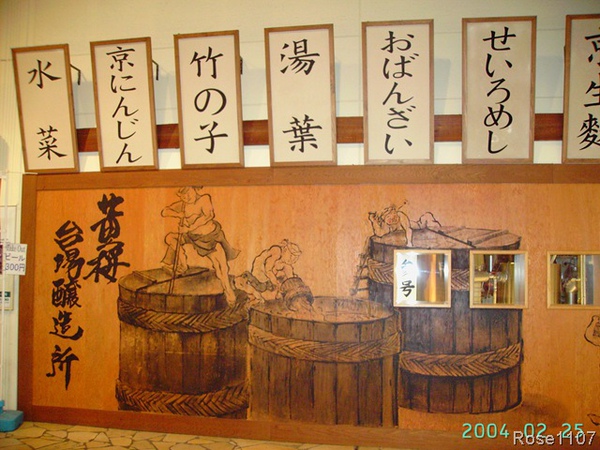 水菜
京にんじん
竹の子
湯葉
おばんざい
せいろめし
京生麩
黄桜
台場醸造所
ビール
300円
号
2004 02 25
Rose1107